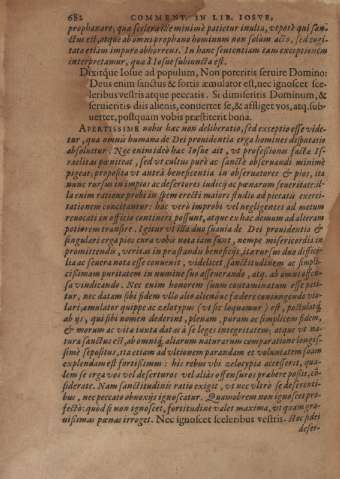 682 COMMENT. IN LIB. IOSVE,
prophanare, qua scelera ille minimè patietur inulta, vepote qui san-
ctus est, atque ab omni prophana hominum non solum actu, sed cogi-
tatu etiam impuro abhorrens. In hanc sententiam tam exceptionem
interpretamur, qua à Iosue subiuncta est.
Dixitque Iosue ad populum, Non poteritis seruire Domino:
Deus enim sanctus & fortis æmulator est, nec ignoscet sce-
leribus vestris atque peccatis. Si dimiseritis Dominum, &
seruieritis diis alienis, conuertet se, & affliget vos, atq. sub-
uertet, postquam vobis præstiterit bona.
APERTISSIME nobis hac non deliberatio, sed exceptio esse vide-
tur, qua omnis humana de Dei prouidentia erga homines disputatio
absoluitur. Nec enim ideo hac Iosue ait, vt professionis factæ Is-
raelitas pœniteat, sed vt cultus purè ac sanctè obseruandi minimè
pigeat; proposita vt anteà beneficentia in obseruatores & pios, ita
nunc rursus in impios ac desertores iudicij ac pœnarum seueritate: il-
la enim ratione probi in spem erecti maiori studio ad pietatis exerci-
tationem concitantur: hac verò improbi vel negligentes ad metum
reuocati in officio contineri possunt, atque ex hac demum ad alteram
potiorem transire. Igitur vt illa duo suauia de Dei prouidentia &
singulari erga pios cura vobis nota iam sunt, nempe misericordia in
promittendo, veritas in præstando beneficijs, ita rursus duo difficil-
lia ac seuera nota esse conuenit, videlicet, sanctitudinem ac simpli-
cissimam puritatem in numine suo asserendo, atq. ab omni offen-
sa vindicando. Nec enim honorem suum contaminatum esse pati-
tur, nec datam sibi fidem vllo alio alienóue fœdere coniungendo vio-
lari, æmulator quippe ac zelotypus (vt sic loquamur) est, postulatq́;
ab ys, qui sibi nomen dederint, plenam, puram ac simplicem fidem,
& morum ac vita iuxta datas à se leges integritatem; atque vt na-
tura sanctus est, ab omniq́; aliarum naturarum comparatione longis-
simè sepositus, ita etiam ad vltionem parandam et voluntatem suam
explendam est fortissimus: his rebus vbi zelotypia accesserit, qua-
lem se erga vos vel deserturos vel aliàs offensuros præbere posset, co̅-
siderate. Nam sanctitudinis ratio exigit, vt nec vltro se deserenti-
bus, nec peccato obnoxijs ignoscatur. Quamobrem non ignoscet pro-
fectò: quòd si non ignoscet, fortitudine valet maxima, vt quàm gra-
uissimas pœnas irroget. Nec ignoscet sceleribus vestris.
deser-